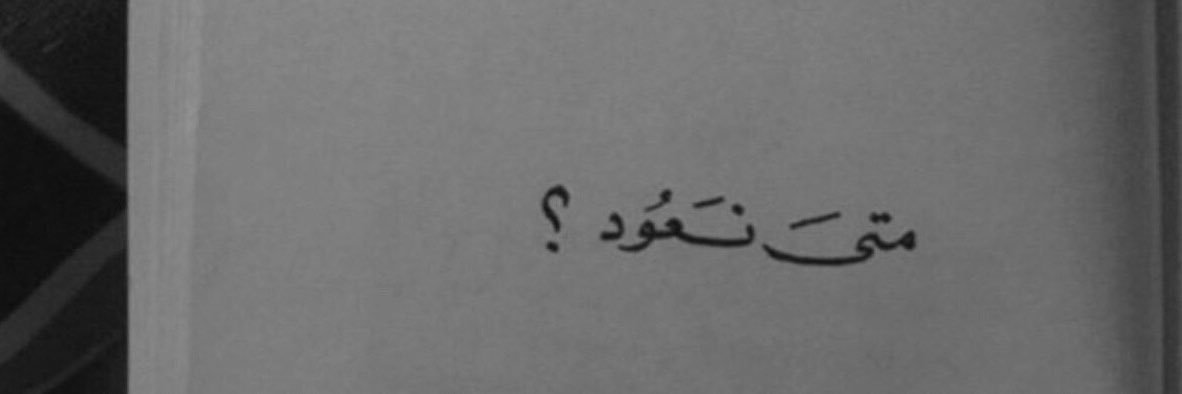 متىَ نَعُود ؟